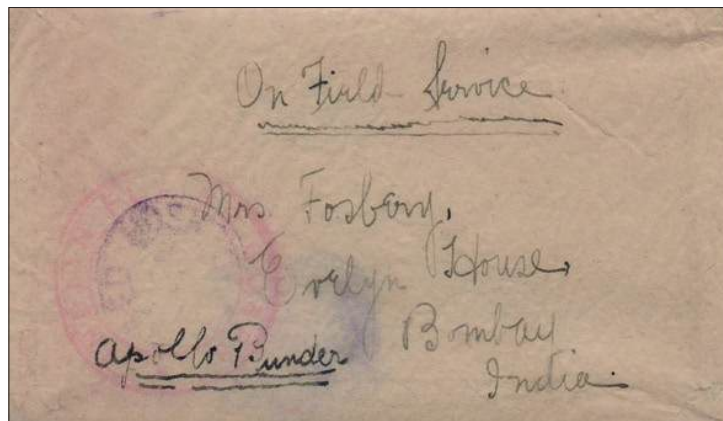 On Field Service.
Mrs Fosbery,
Evelyn House,
Bombay
India.
Apollo Bunder